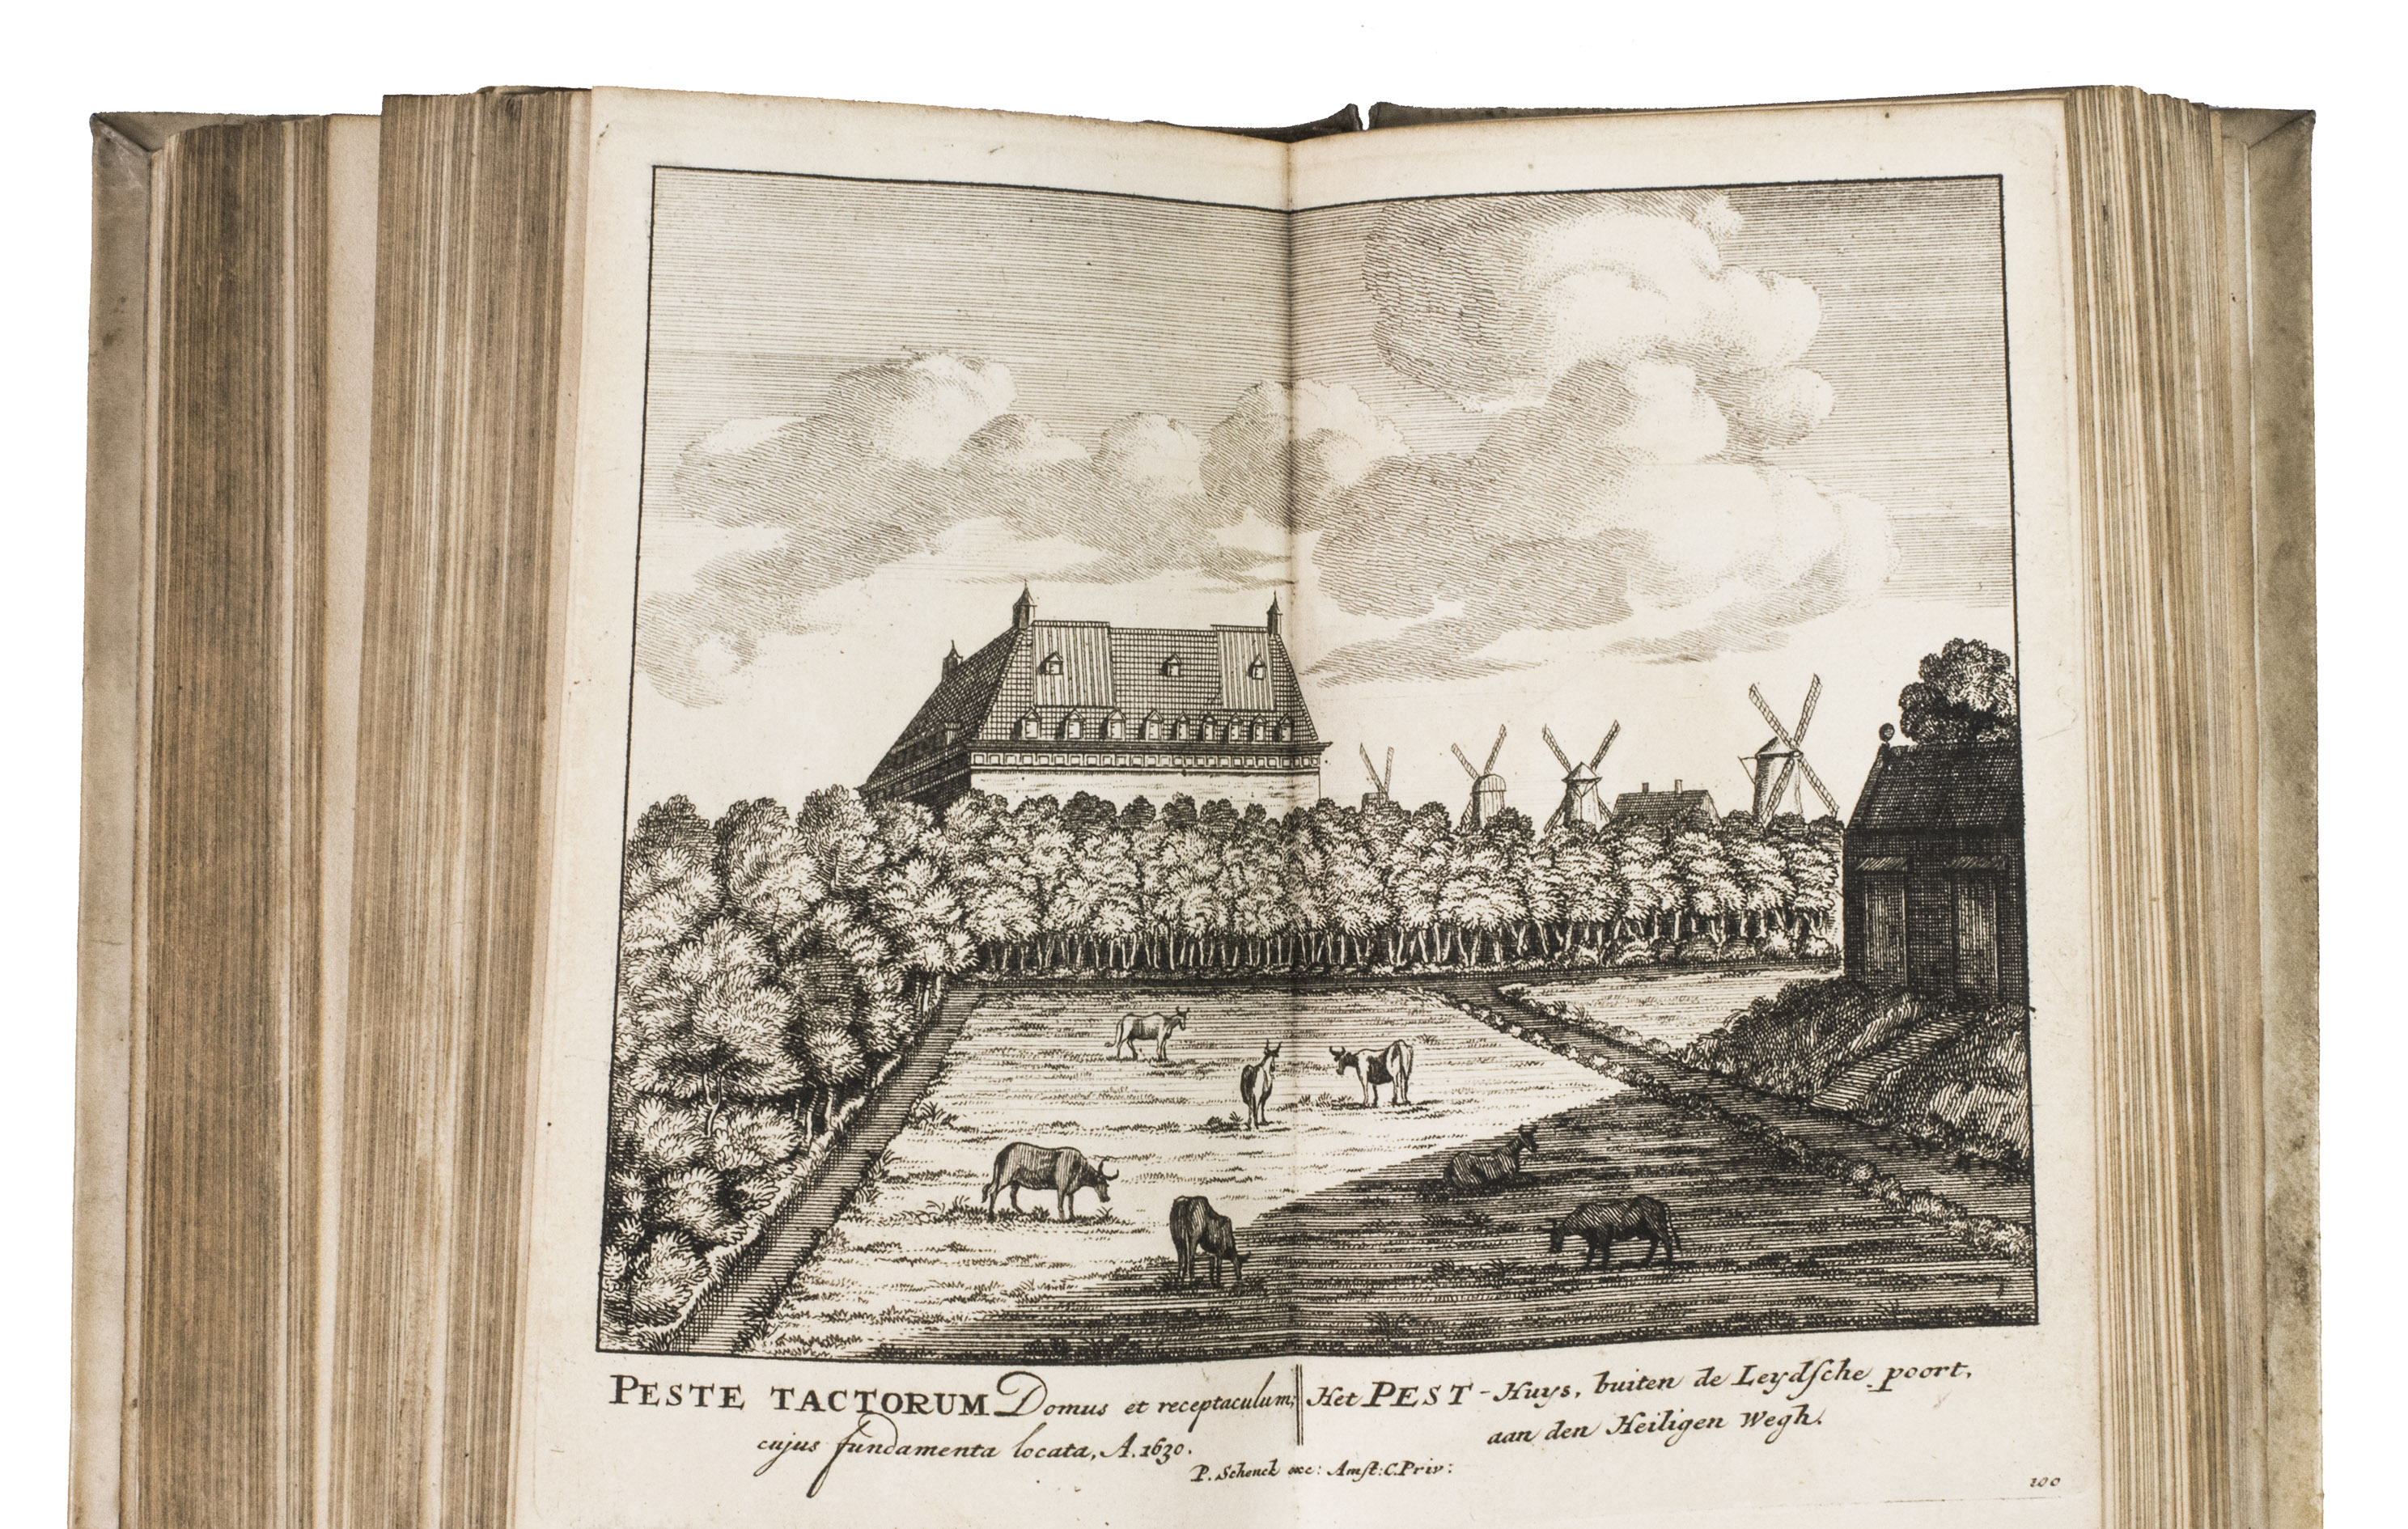 PESTE TACTORUM Domus et receptaculum;
cujus fundamenta locata, A. 1630.
Het PEST-Huys, buiten de Leydsche poort,
aan den Heiligen Wegh.
P. Schenck exc: Amst: C. Priv:
100